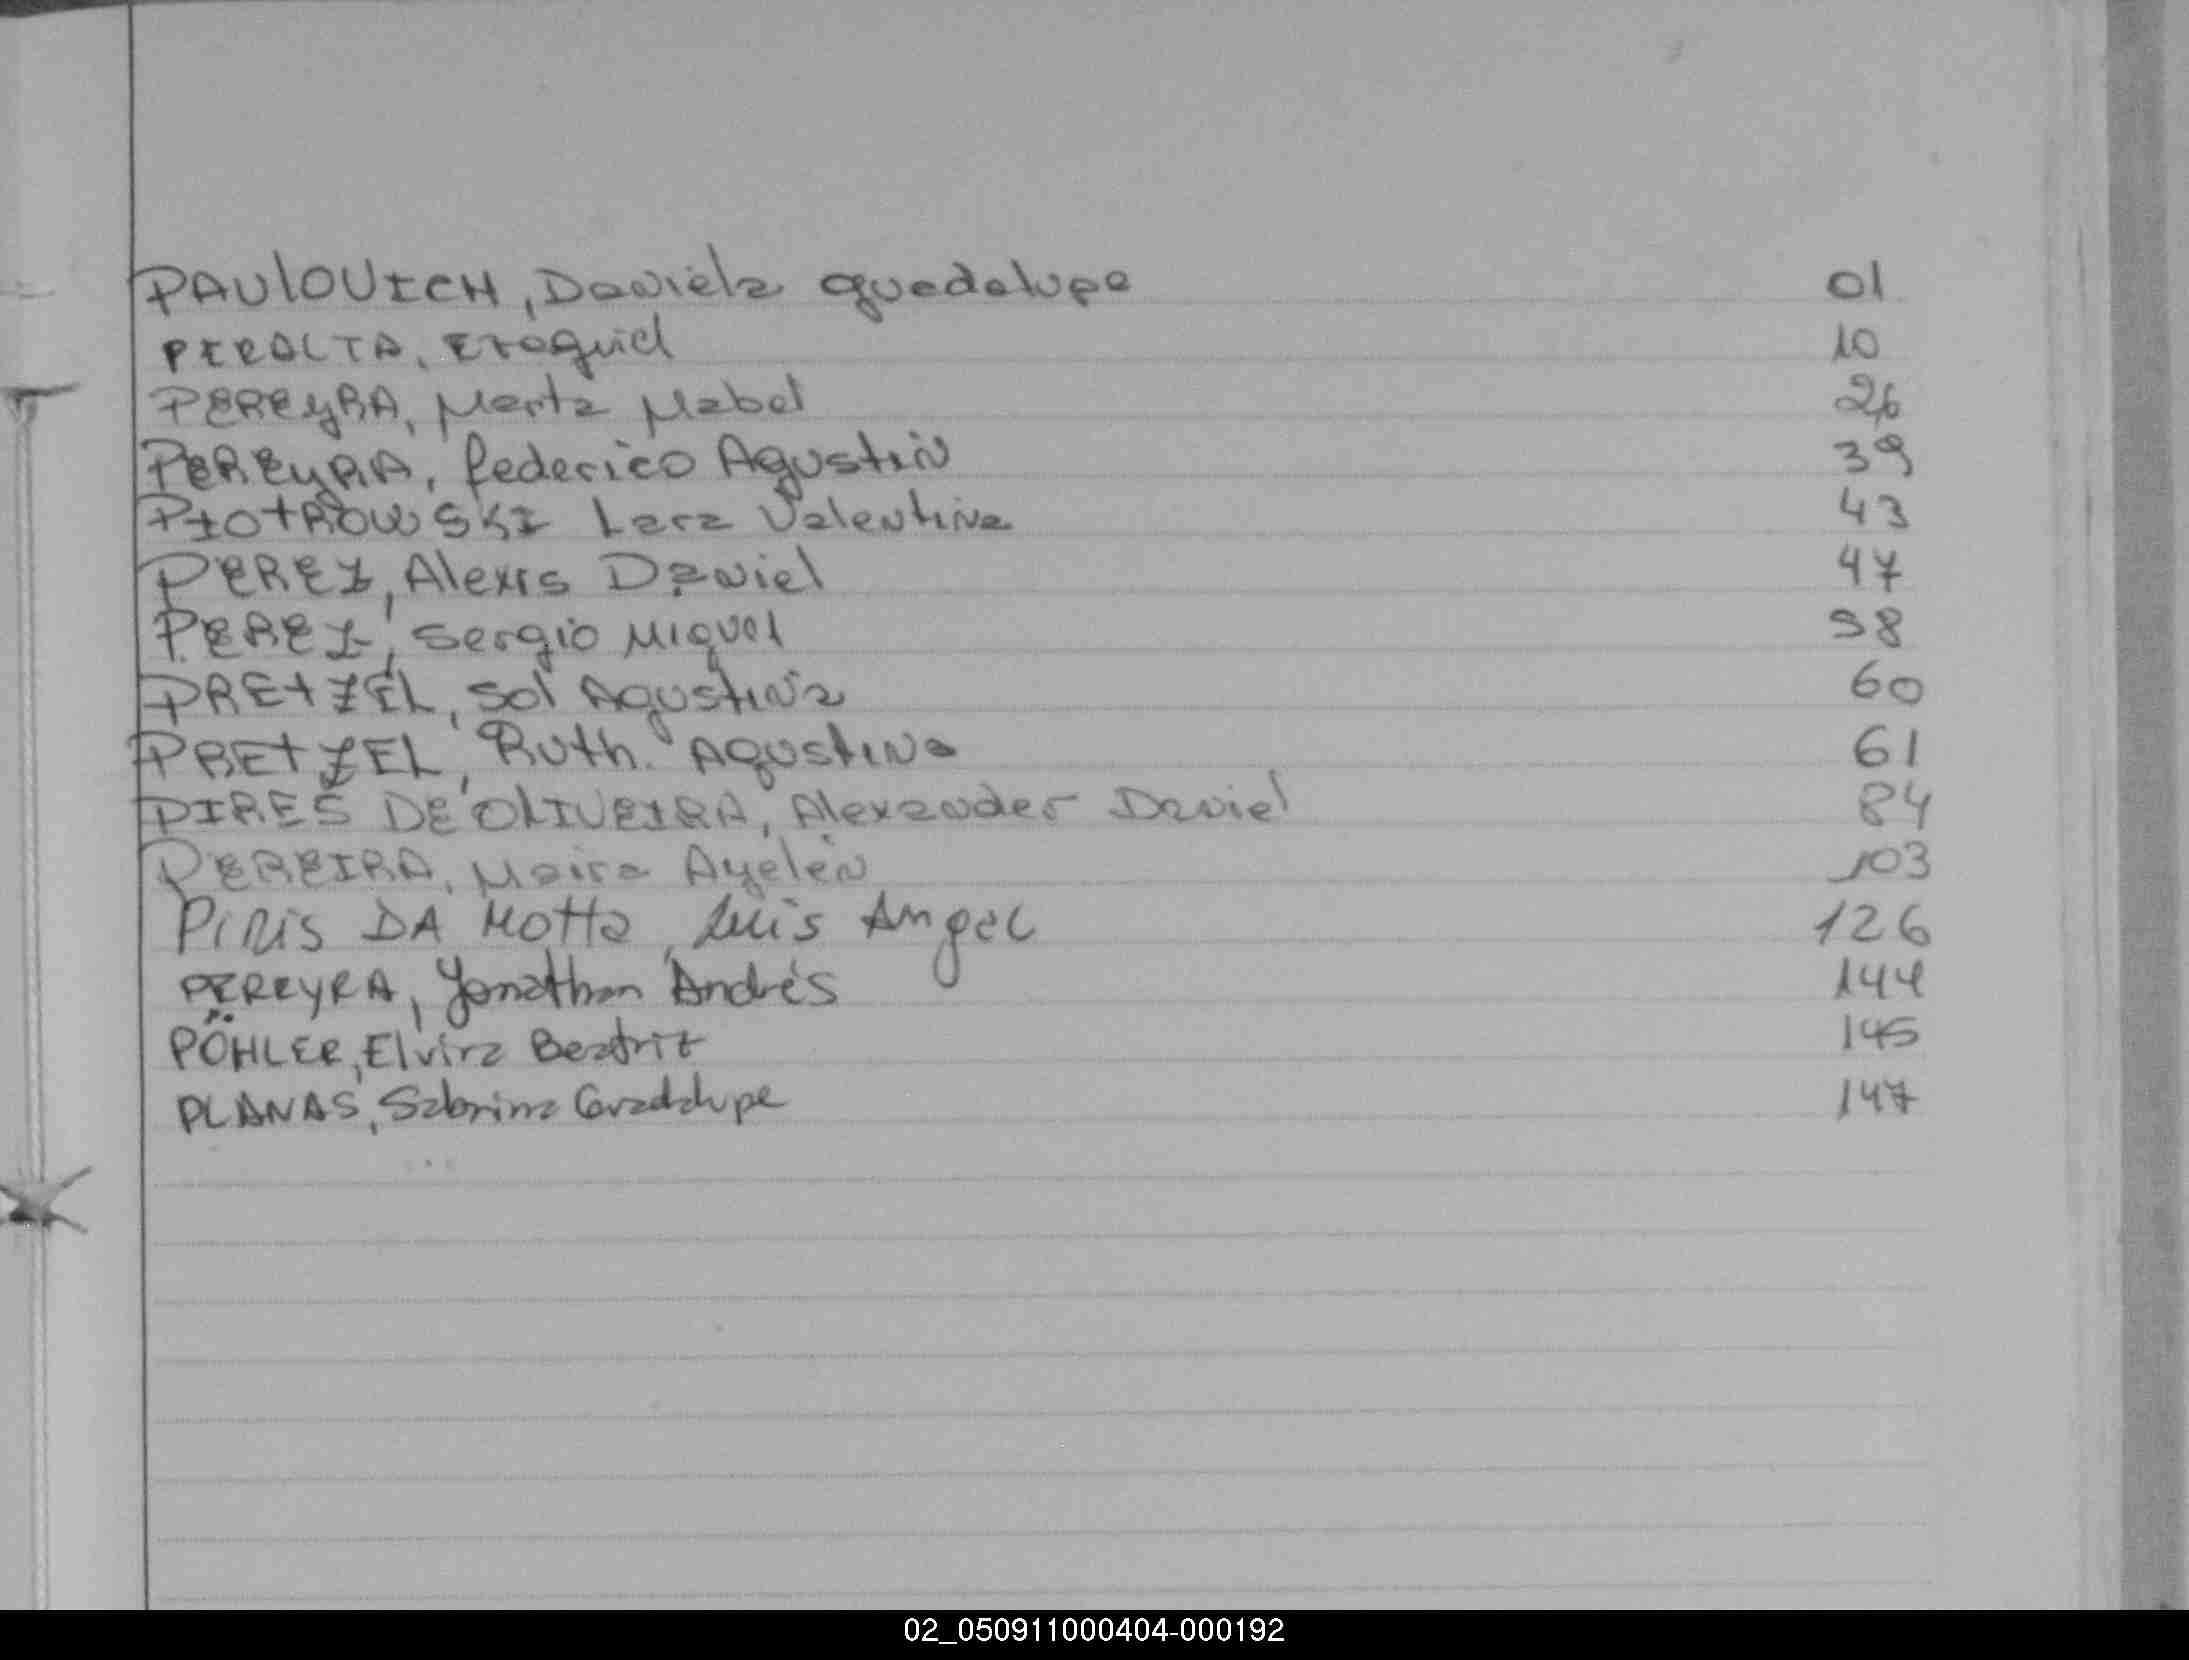 PAULOVICH, Daniela guadalupe 01
PERALTA, Ezequiel 10
PEREYRA, Marta Mabel 26
PEREYRA, federico Agustin 39
PIOTROWSKI Lara Valentina 43
PEREZ, Alexis Daniel 47
PEREZ, Sergio Miguel 58
PRETZEL, Sol Agustina 60
PRETZEL, Ruth Agustina 61
PIRES DE OLIVEIRA, Alexander Daniel 84
PEREIRA, Maira Ayelén 103
PIRIS DA Motta, Luis Angel 126
PEREYRA, Yonathan Andrés 144
PÖHLER, Elvira Beatriz 145
PLANAS, Sabrina Guadalupe 147
02_050911000404-000192